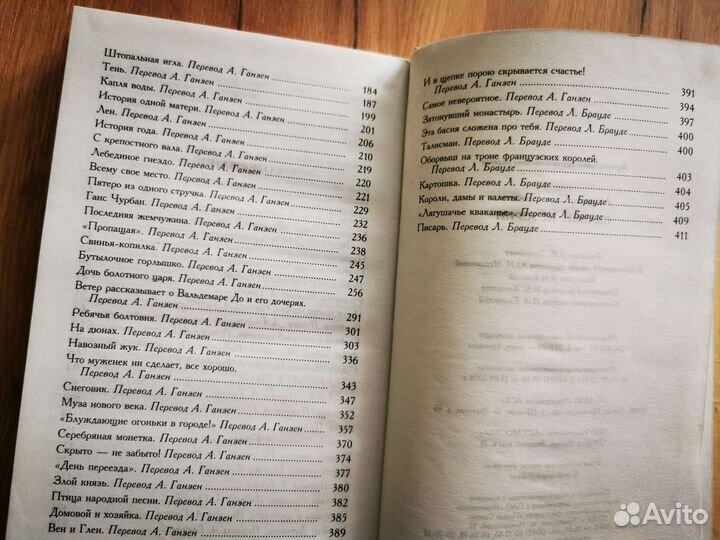 Штопальная игла. Перевод А. Ганзен 184
Тень. Перевод А. Ганзен 187
Капля воды. Перевод А. Ганзен 199
История одной матери. Перевод А. Ганзен 201
Лен. Перевод А. Ганзен 206
История года. Перевод А. Ганзен 210
С крепостного вала. Перевод А. Ганзен 219
Лебединое гнездо. Перевод А. Ганзен 220
Всему свое место. Перевод А. Ганзен 221
Пятеро из одного стручка. Перевод А. Ганзен 229
Ганс Чурбан. Перевод А. Ганзен 232
Последняя жемчужина. Перевод А. Ганзен 236
«Пропащая». Перевод А. Ганзен 238
Свинья-копилка. Перевод А. Ганзен 245
Бутылочное горлышко. Перевод А. Ганзен 247
Дочь болотного царя. Перевод А. Ганзен 256
Ветер рассказывает о Вальдемаре До и его дочерях.
Перевод А. Ганзен 291
Ребячья болтовня. Перевод А. Ганзен 301
На дюнах. Перевод А. Ганзен 303
Навозный жук. Перевод А. Ганзен 336
Что муженек ни сделает, все хорошо.
Перевод А. Ганзен 343
Снеговик. Перевод А. Ганзен 347
Муза нового века. Перевод А. Ганзен 352
«Блуждающие огоньки в городе!» Перевод А. Ганзен 357
Серебряная монетка. Перевод А. Ганзен 370
Скрыто — не забыто! Перевод А. Ганзен 374
«День переезда». Перевод А. Ганзен 377
Злой князь. Перевод А. Ганзен 380
Птица народной песни. Перевод А. Ганзен 382
Домовой и хозяйка. Перевод А. Ганзен 385
Вен и Глен. Перевод А. Ганзен 389
И в щепке порою скрывается счастье!
Перевод А. Ганзен 391
Самое невероятное. Перевод А. Ганзен 394
Затонувший монастырь. Перевод Л. Брауде 397
Эта басня сложена про тебя. Перевод Л. Брауде 400
Талисман. Перевод Л. Брауде 400
Оборвыш на троне французских королей.
Перевод Л. Брауде 403
Картошка. Перевод Л. Брауде 404
Короли, дамы и валеты. Перевод Л. Брауде 405
«Лягушачье кваканье». Перевод Л. Брауде 409
Писарь. Перевод Л. Брауде 411
Avito